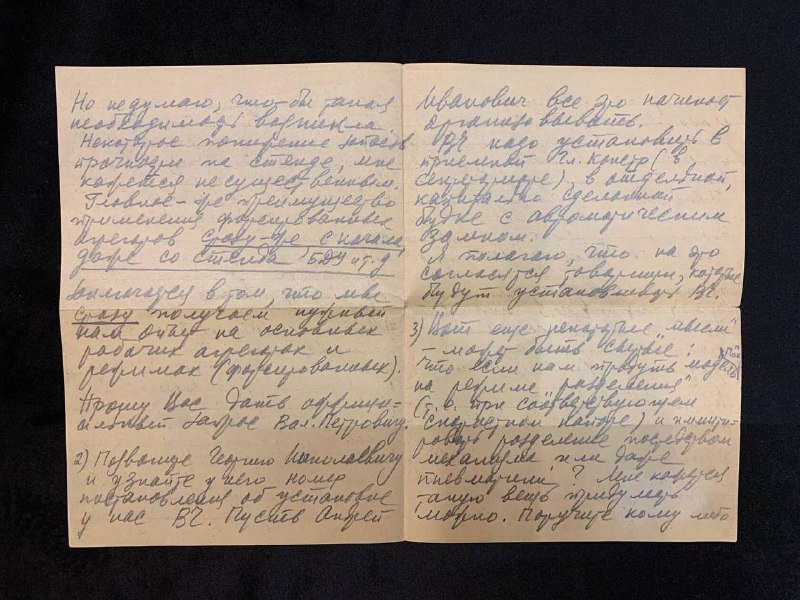 Но не думаю, что-бы такая
необходимость возникла.
Некоторое понижение
прочности на стенде, мне
кажется несущественным.
Главное-же преимущество
применения форсированных
агрегатов сразу-же с начала,
даже со стенда БДУ и т.д
заключается в том, что мы
сразу получаем нужный
нам ответ на основных
рабочих агрегатах и
режимах (форсированных).
Прошу Вас дать оффици-
альный запрос Вал. Петровичу
2) Позвоните Георгию Николаевичу
и узнайте у него номер
постановления об установке
у нас ВЧ. Пусть Андрей
Иванович все это начинает
организовывать.
ВЧ надо установить в
приемной Гл. констр (в
секретариате), в отдельной,
капитально сделанной
будке с автоматическим
замком.
Я полагаю, что на это
согласятся товарищи, которые
будут устанавливать ВЧ.
3) Вот еще некоторые "мысли"
- может быть "свежие":
Что если нам продуть модель "Пак.
на режиме "разделения"
(т.е. при соответствующем
скоростном напоре) и имити-
ровать разделение посредством
механизма или даже
пневматики? Мне кажется
такую вещь придумать
можно. Поручите кому либо